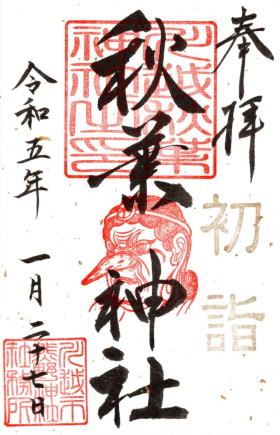 奉拝
初詣
秋葉神社
令和五年 一月二十七日